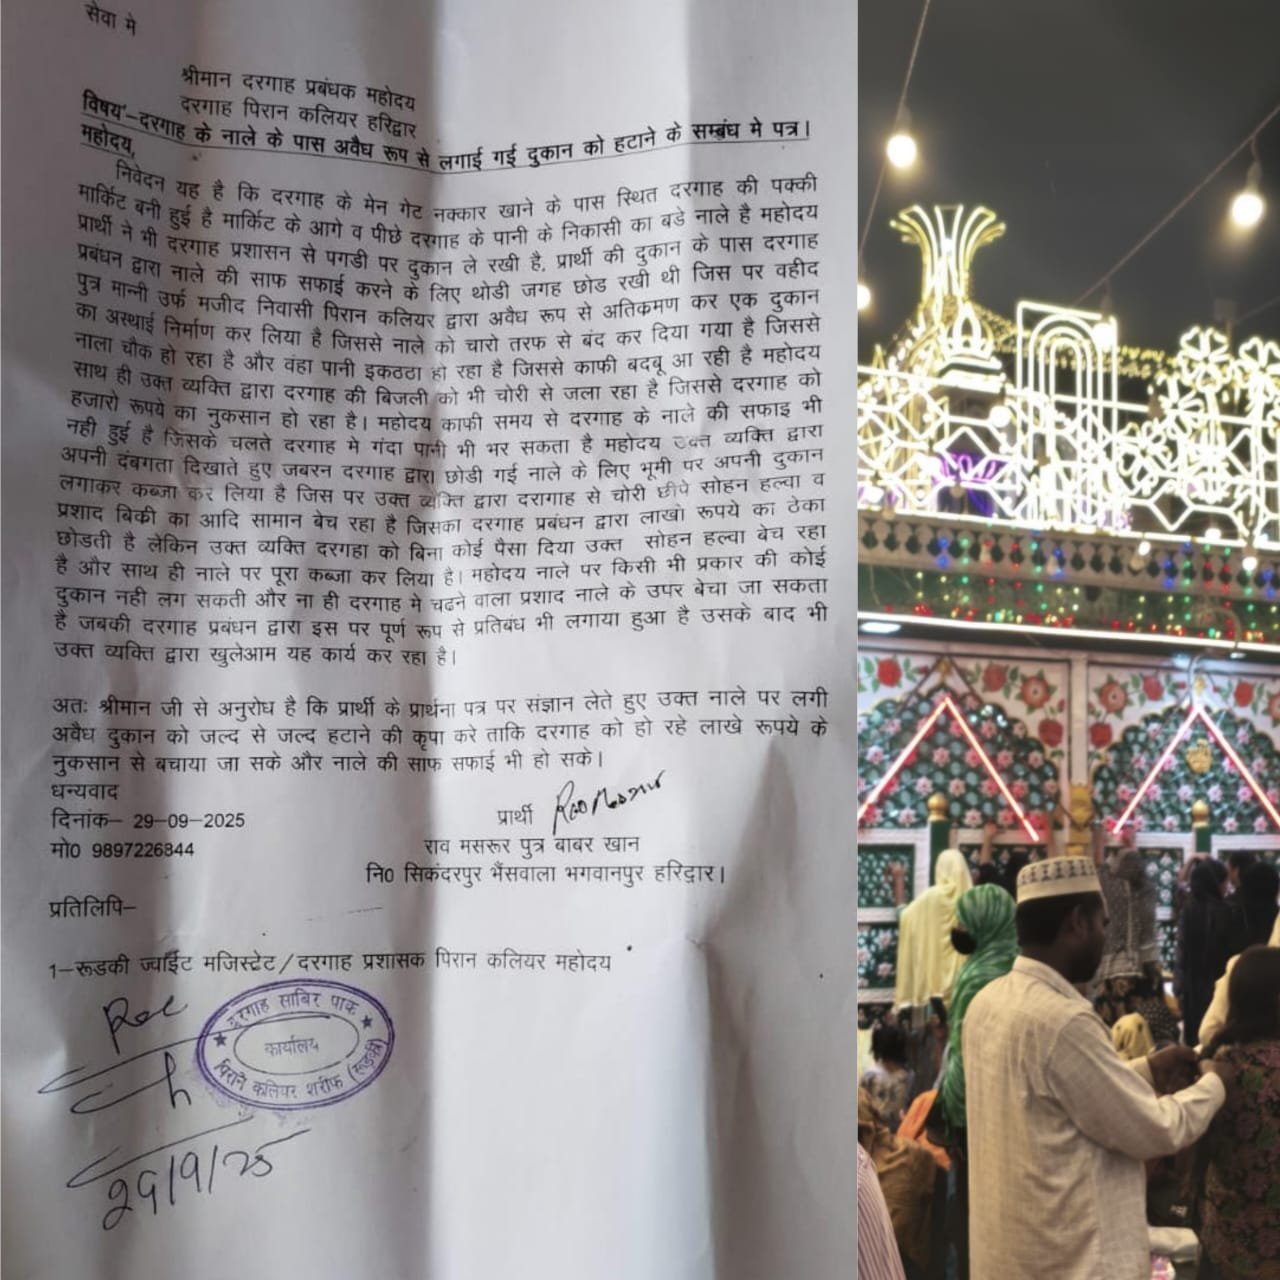 सेवा मे
श्रीमान दरगाह प्रबंधक महोदय
दरगाह पिरान कलियर हरिद्वार
विषय–दरगाह के नाले के पास अवैध रूप से लगाई गई दुकान को हटाने के सम्बंध मे पत्र।
महोदय,
निवेदन यह है कि दरगाह के मेन गेट नक्कार खाने के पास स्थित दरगाह की पक्की
मार्किट बनी हुई है मार्किट के आगे व पीछे दरगाह के पानी के निकासी का बडे नाले है महोदय
प्रार्थी ने भी दरगाह प्रशासन से पगडी पर दुकान ले रखी है, प्रार्थी की दुकान के पास दरगाह
प्रबंधन द्वारा नाले की साफ सफाई करने के लिए थोडी जगह छोड रखी थी जिस पर वहीद
पुत्र मान्नी उर्फ मजीद निवासी पिरान कलियर द्वारा अवैध रूप से अतिक्रमण कर एक दुकान
का अस्थाई निर्माण कर लिया है जिससे नाले को चारो तरफ से बंद कर दिया गया है जिससे
नाला चौक हो रहा है और वंहा पानी इकठठा हो रहा है जिससे काफी बदबू आ रही है महोदय
साथ ही उक्त व्यक्ति द्वारा दरगाह की बिजली को भी चोरी से जला रहा है जिससे दरगाह को
हजारो रूपये का नुकसान हो रहा है। महोदय काफी समय से दरगाह के नाले की सफाइ भी
नही हुई है जिसके चलते दरगाह मे गंदा पानी भी भर सकता है महोदय उक्त व्यक्ति द्वारा
अपनी दंबगता दिखाते हुए जबरन दरगाह द्वारा छोडी गई नाले के लिए भूमी पर अपनी दुकान
लगाकर कब्जा कर लिया है जिस पर उक्त व्यक्ति द्वारा दरागाह से चोरी छीपे सोहन हल्वा व
प्रशाद बिक्री का आदि सामान बेच रहा है जिसका दरगाह प्रबंधन द्वारा लाखो रूपये का ठेका
छोडती है लेकिन उक्त व्यक्ति दरगहा को बिना कोई पैसा दिया उक्त सोहन हल्वा बेच रहा
है और साथ ही नाले पर पूरा कब्जा कर लिया है। महोदय नाले पर किसी भी प्रकार की कोई
दुकान नही लग सकती और ना ही दरगाह मे चढने वाला प्रशाद नाले के उपर बेचा जा सकता
है जबकी दरगाह प्रबंधन द्वारा इस पर पूर्ण रूप से प्रतिबंध भी लगाया हुआ है उसके बाद भी
उक्त व्यक्ति द्वारा खुलेआम यह कार्य कर रहा है।
अतः श्रीमान जी से अनुरोध है कि प्रार्थी के प्रार्थना पत्र पर संज्ञान लेते हुए उक्त नाले पर लगी
अवैध दुकान को जल्द से जल्द हटाने की कृपा करे ताकि दरगाह को हो रहे लाखे रूपये के
नुकसान से बचाया जा सके और नाले की साफ सफाई भी हो सके।
धन्यवाद
दिनांक– 29-09-2025
प्रार्थी
मो0 9897226844
राव मसरूर पुत्र बाबर खान
नि0 सिकंदरपुर भैंसवाला भगवानपुर हरिद्वार।
प्रतिलिपि–
1–रूडकी ज्वाईट मजिस्टेट/दरगाह प्रशासक पिरान कलियर महोदय
दरगाह साबिर पाक
कार्यालय
पिरान कलियर शरीफ (रूड़की)
29/9/25